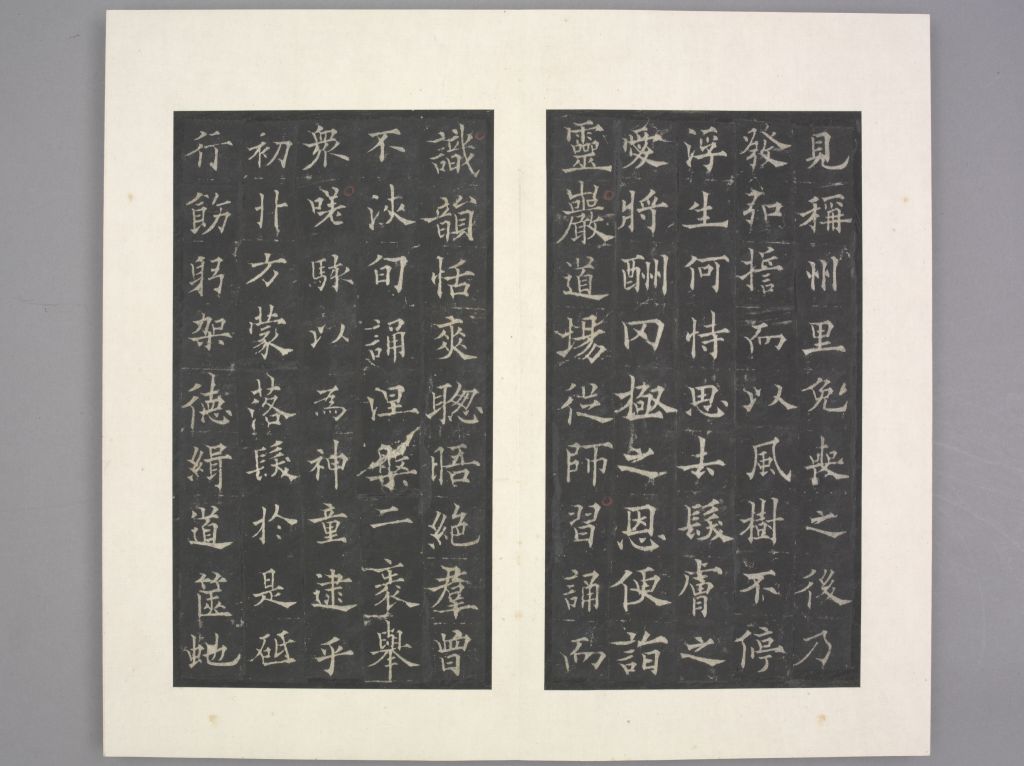 見稱州里免喪之後乃
發弘誓而以風樹不停
浮生何恃思去髮膚之
愛將酬罔極之恩便詣
靈巖道場從師習誦而
識韻恬爽聰晤絶羣曾
不浹旬誦涅槃二袠舉
衆嗟駭以為神童逮乎
初卝方蒙落髮於是砥
行飭躬架德緝道篋虵